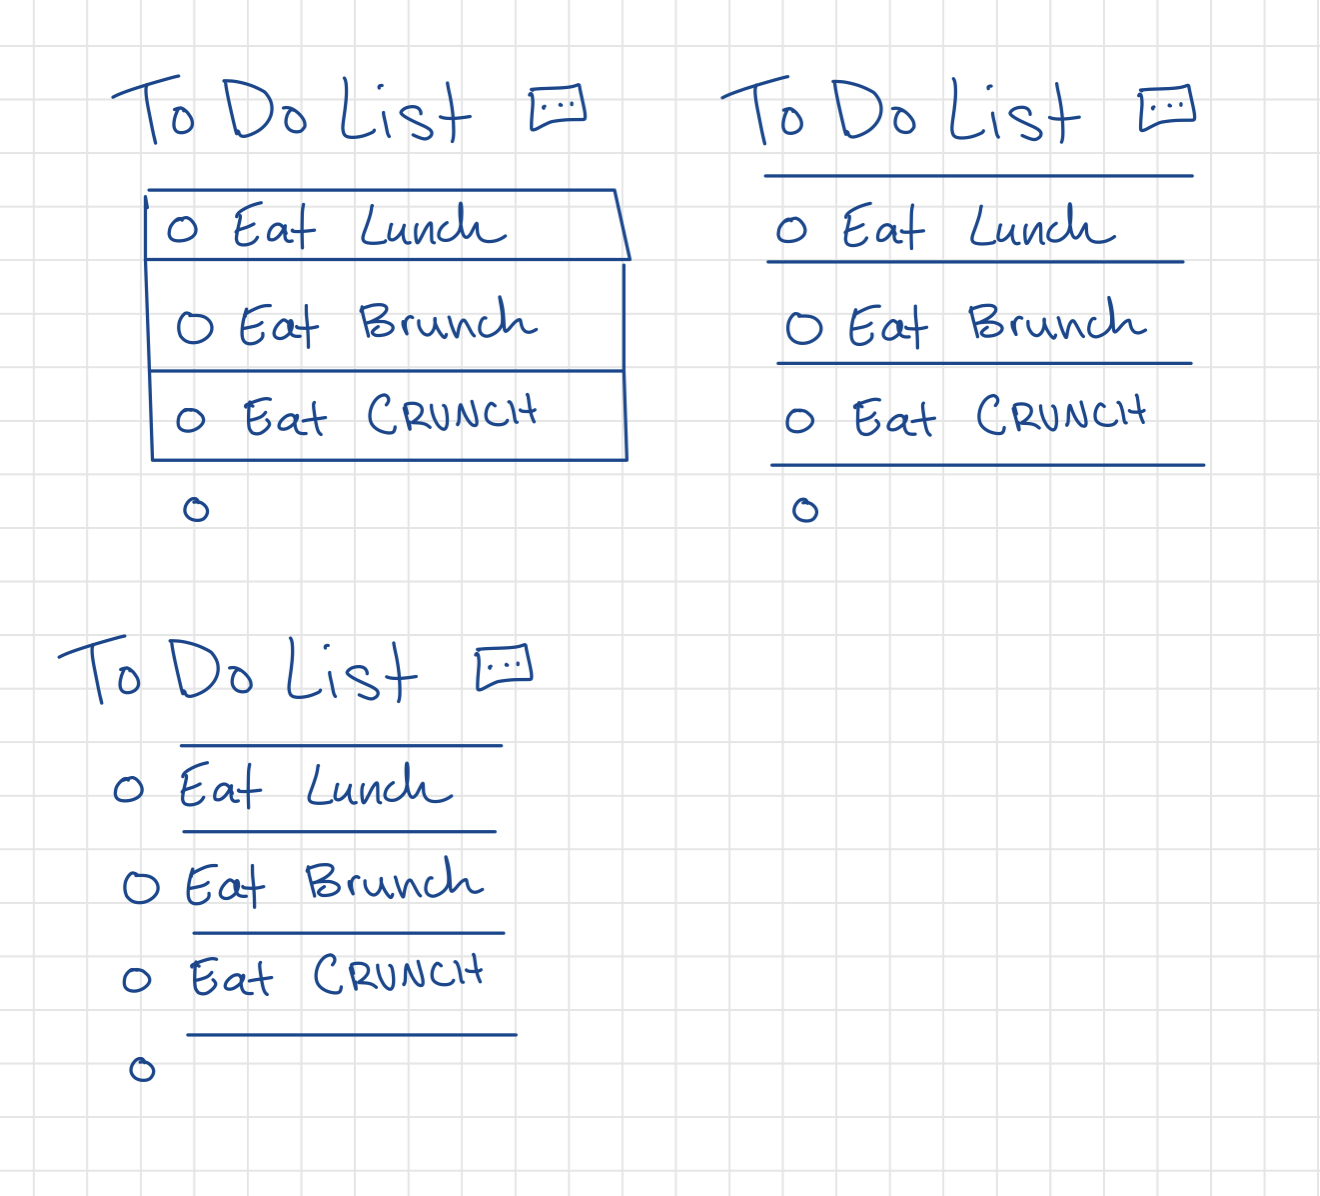 To Do List
Eat Lunch
Eat Brunch
Eat CRUNCH
To Do List
Eat Lunch
Eat Brunch
Eat CRUNCH
To Do List
Eat Lunch
Eat Brunch
Eat CRUNCH